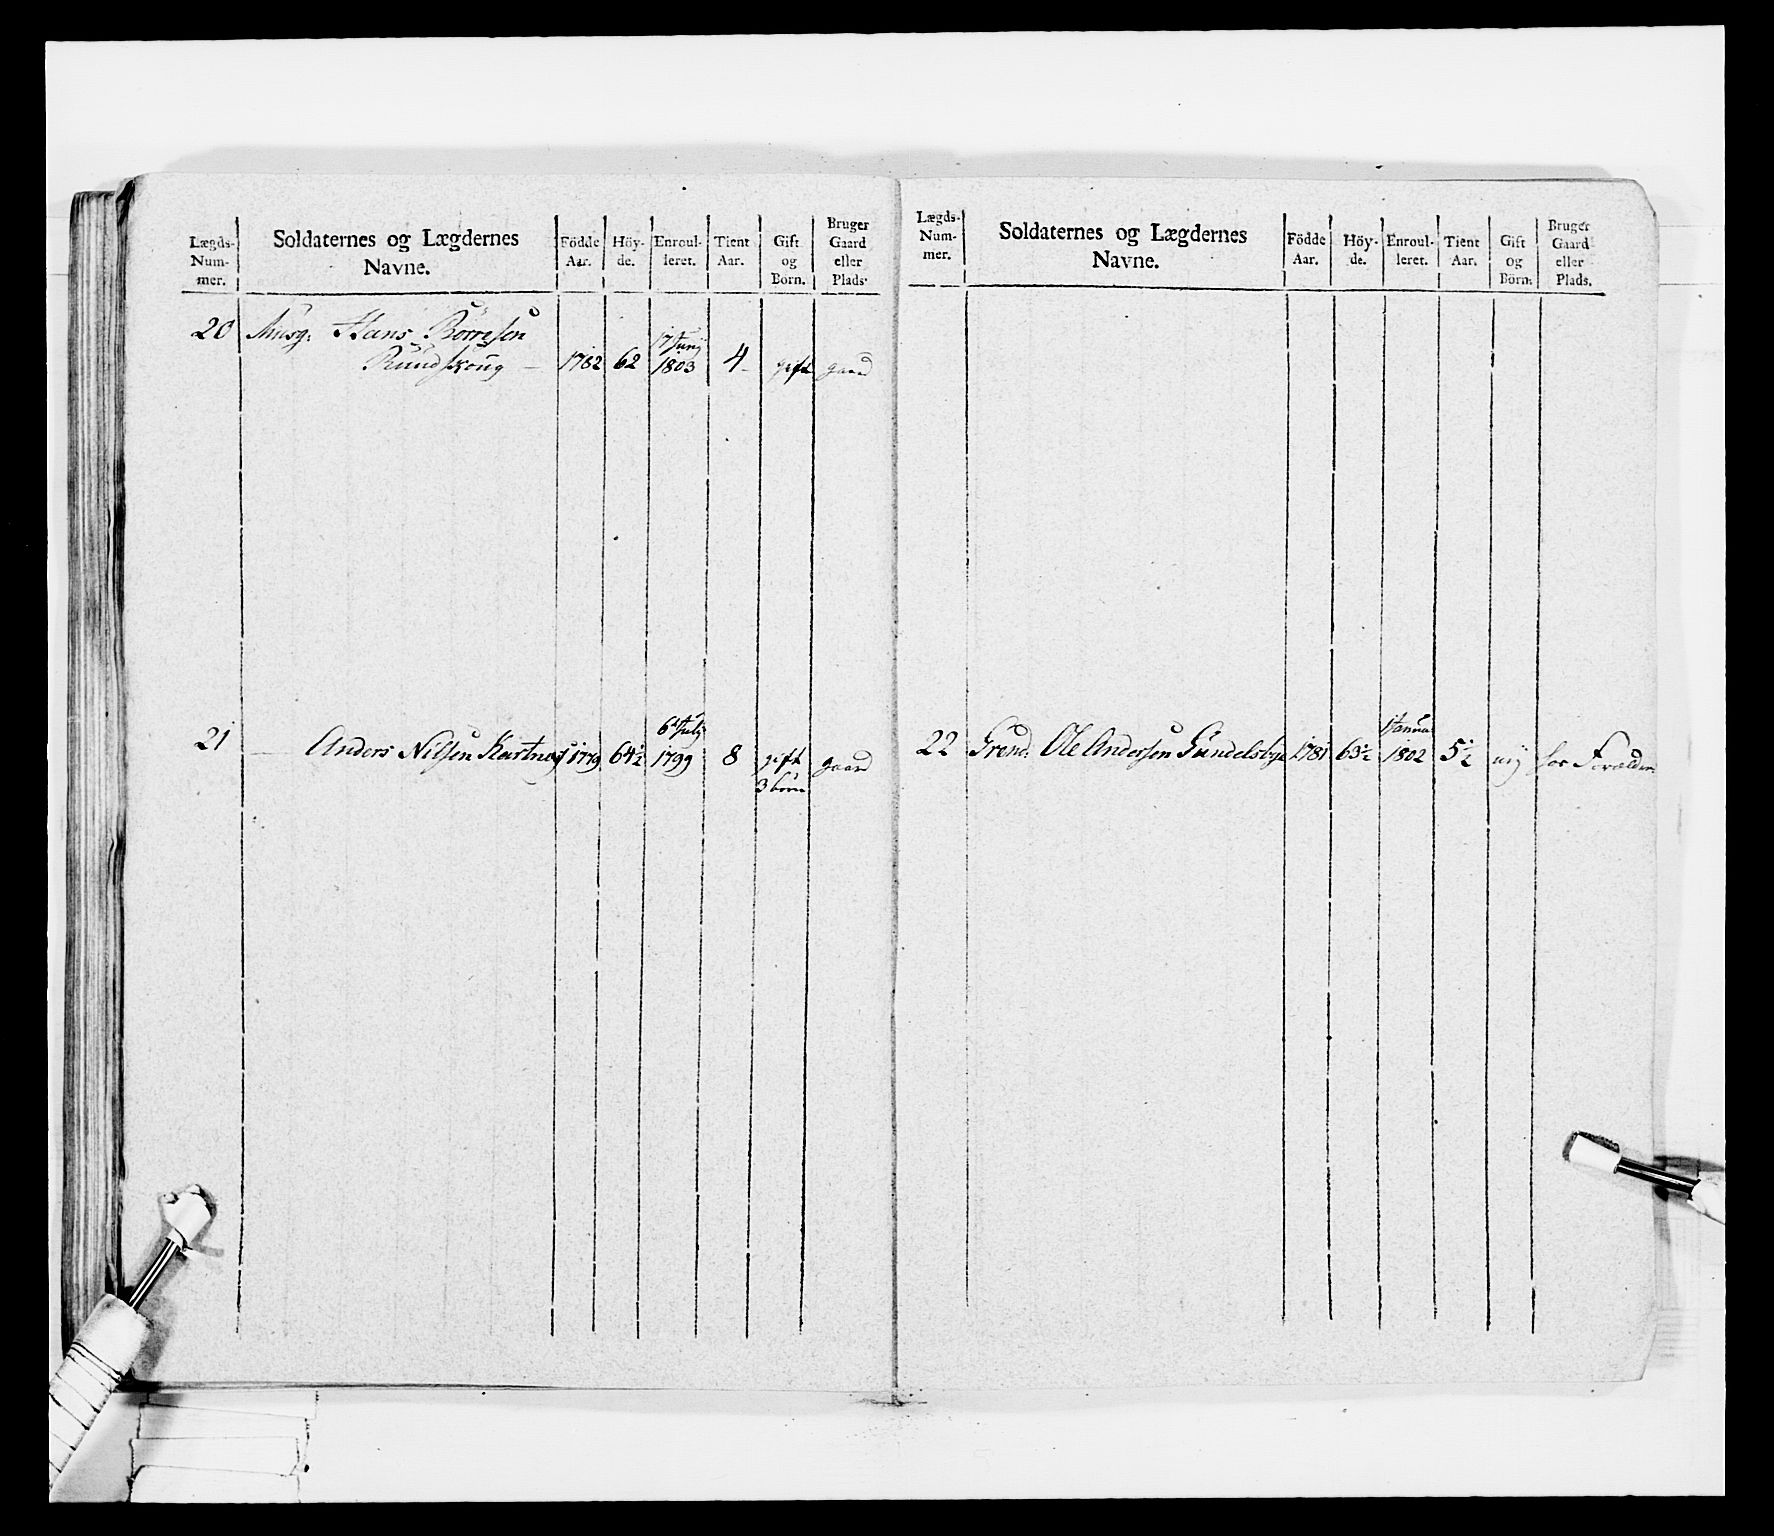 Lægds-
Num-
mer.
Soldaternes og Lægdernes
Navne.
Födde
Aar.
Höy-
de.
Enroul-
leret.
Tient
Aar.
Gift
og
Börn.
Bruger
Gaard
eller
Plads.
20 Musq: Hans Börresen
17 Junij
Rundskoug – 1782 62 1803 4 – gift gaard
6 July
21 — Anders Nilsen 1779 64½ 1799 8 gift gaard
3 börn
Lægds-
Num-
mer.
Soldaternes og Lægdernes
Navne.
Födde
Aar.
Höy-
de.
Enroul-
leret.
Tient
Aar.
Gift
og
Börn.
Bruger
Gaard
eller
Plads.
1 Janua
22 Grend: Ole Andersen Gundelsbye 1781 63½ 1802 5½ hos Forældre